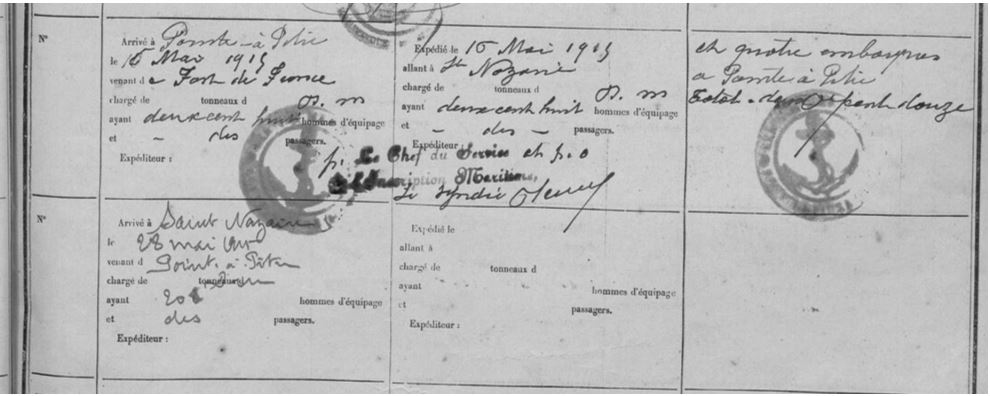 N°
Arrivé à Pointe-à-Pitre
le 15 Mai 1915
venant de Fort de France
chargé de tonneaux d
ayant deux cent huit hommes d'équipage
et - des passagers.
Expéditeur :
Expédié le 15 Mai 1915
allant à St Nazaire
chargé de tonneaux d
ayant deux cent huit hommes d'équipage
et - des - passagers.
Expéditeur :
p. Le Chef du Service et p. o
de l'Inscription Maritime,
Le Syndic
et quatre embarqués
a Pointe à Pitre
Total = deux cent douze
N°
Arrivé à Saint Nazaire
le 28 mai 1915
venant d Point. à Pitre
chargé de tonneaux d
ayant hommes d'équipage
et des passagers.
Expéditeur :
Expédié le
allant à
chargé de tonneaux d
ayant hommes d'équipage
et passagers.
Expéditeur :